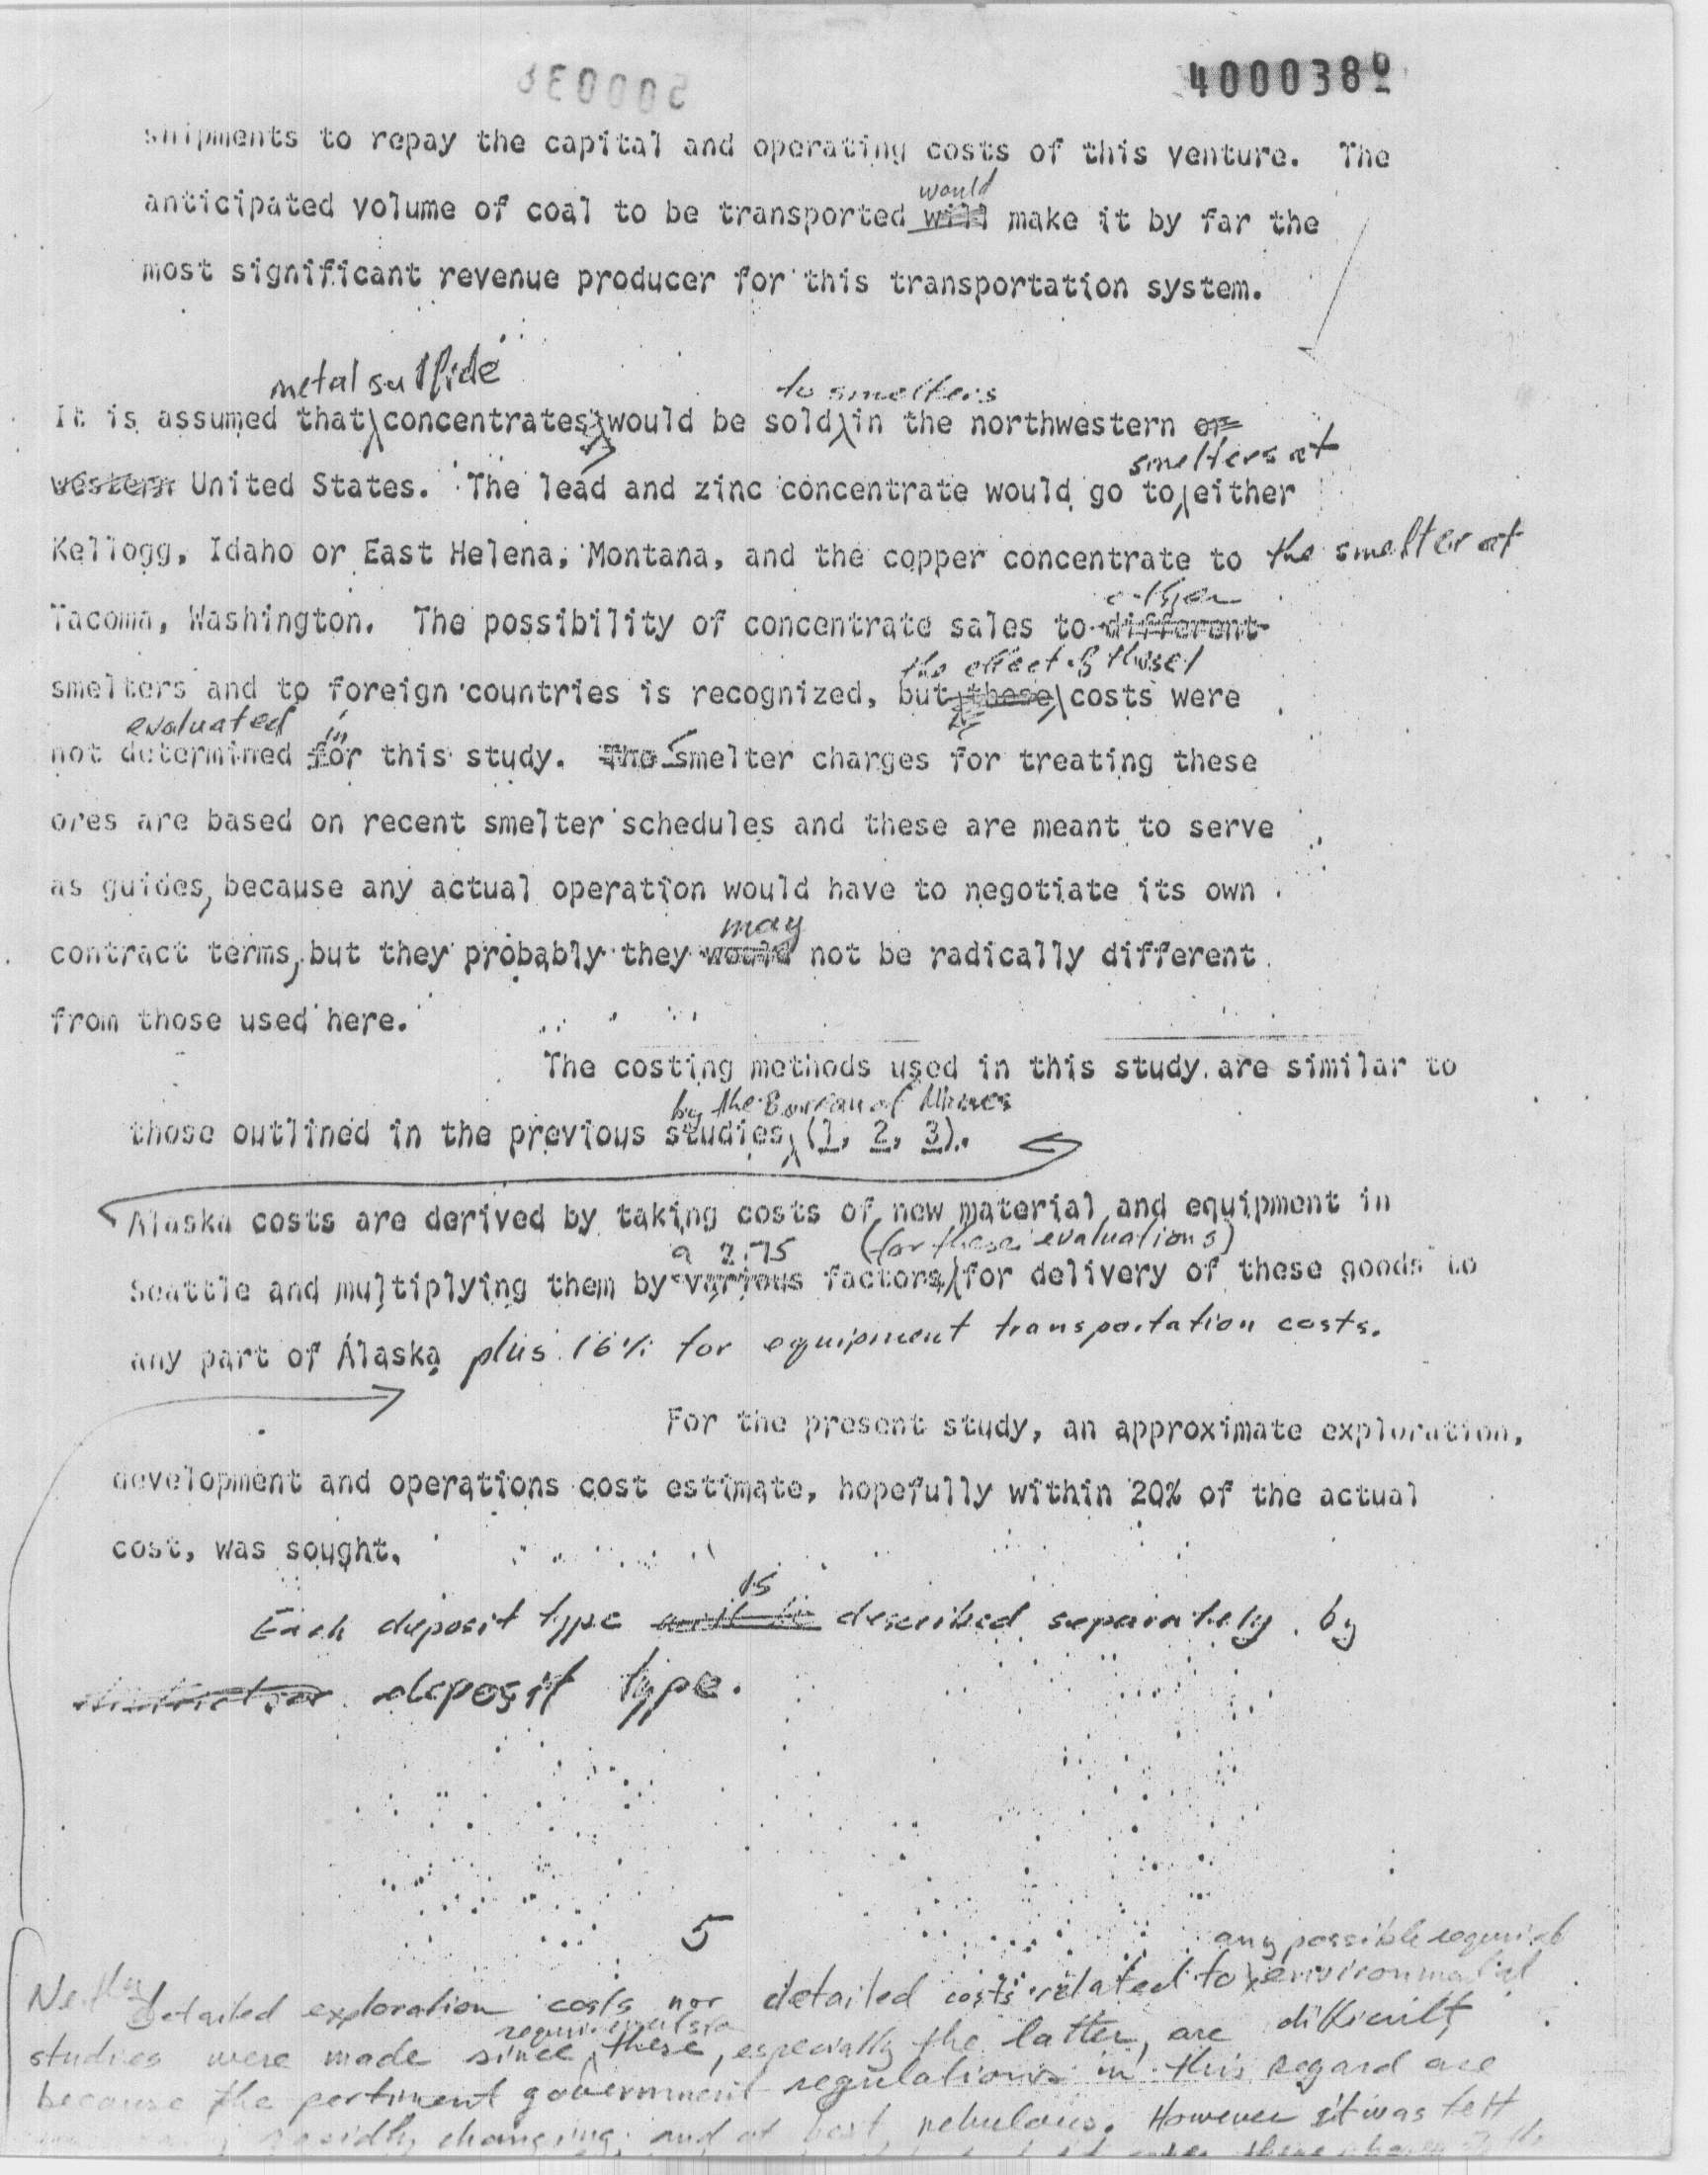 4000380
shipments to repay the capital and operating costs of this venture. The
would
anticipated volume of coal to be transported will make it by far the
most significant revenue producer for this transportation system.
metal sulfide
to smelters
It is assumed that concentrates would be sold in the northwestern or
smelters at
western United States. The lead and zinc concentrate would go to either
Kellogg, Idaho or East Helena, Montana, and the copper concentrate to the smelter at
other
Tacoma, Washington. The possibility of concentrate sales to different
the effect of these
smelters and to foreign countries is recognized, but these costs were
evaluated in
not determined for this study. The Smelter charges for treating these
ores are based on recent smelter schedules and these are meant to serve
as guides, because any actual operation would have to negotiate its own
may
contract terms, but they probably they would not be radically different
from those used here.
The costing methods used in this study are similar to
by the Bureau of Mines
those outlined in the previous studies (1, 2, 3).
Alaska costs are derived by taking costs of new material and equipment in
a 2.75 (for these evaluations)
Seattle and multiplying them by various factors for delivery of these goods to
any part of Alaska plus 16% for equipment transportation costs.
For the present study, an approximate exploration,
development and operations cost estimate, hopefully within 20% of the actual
cost, was sought.
is
Each deposit type will be described separately by
deposit type.
5
any possible required
Neither detailed exploration costs nor detailed costs related to environmental
requirements
studies were made since these, especially the latter, are difficult
because the pertinent government regulations in this regard are
rapidly changing and at best nebulous. However it was felt